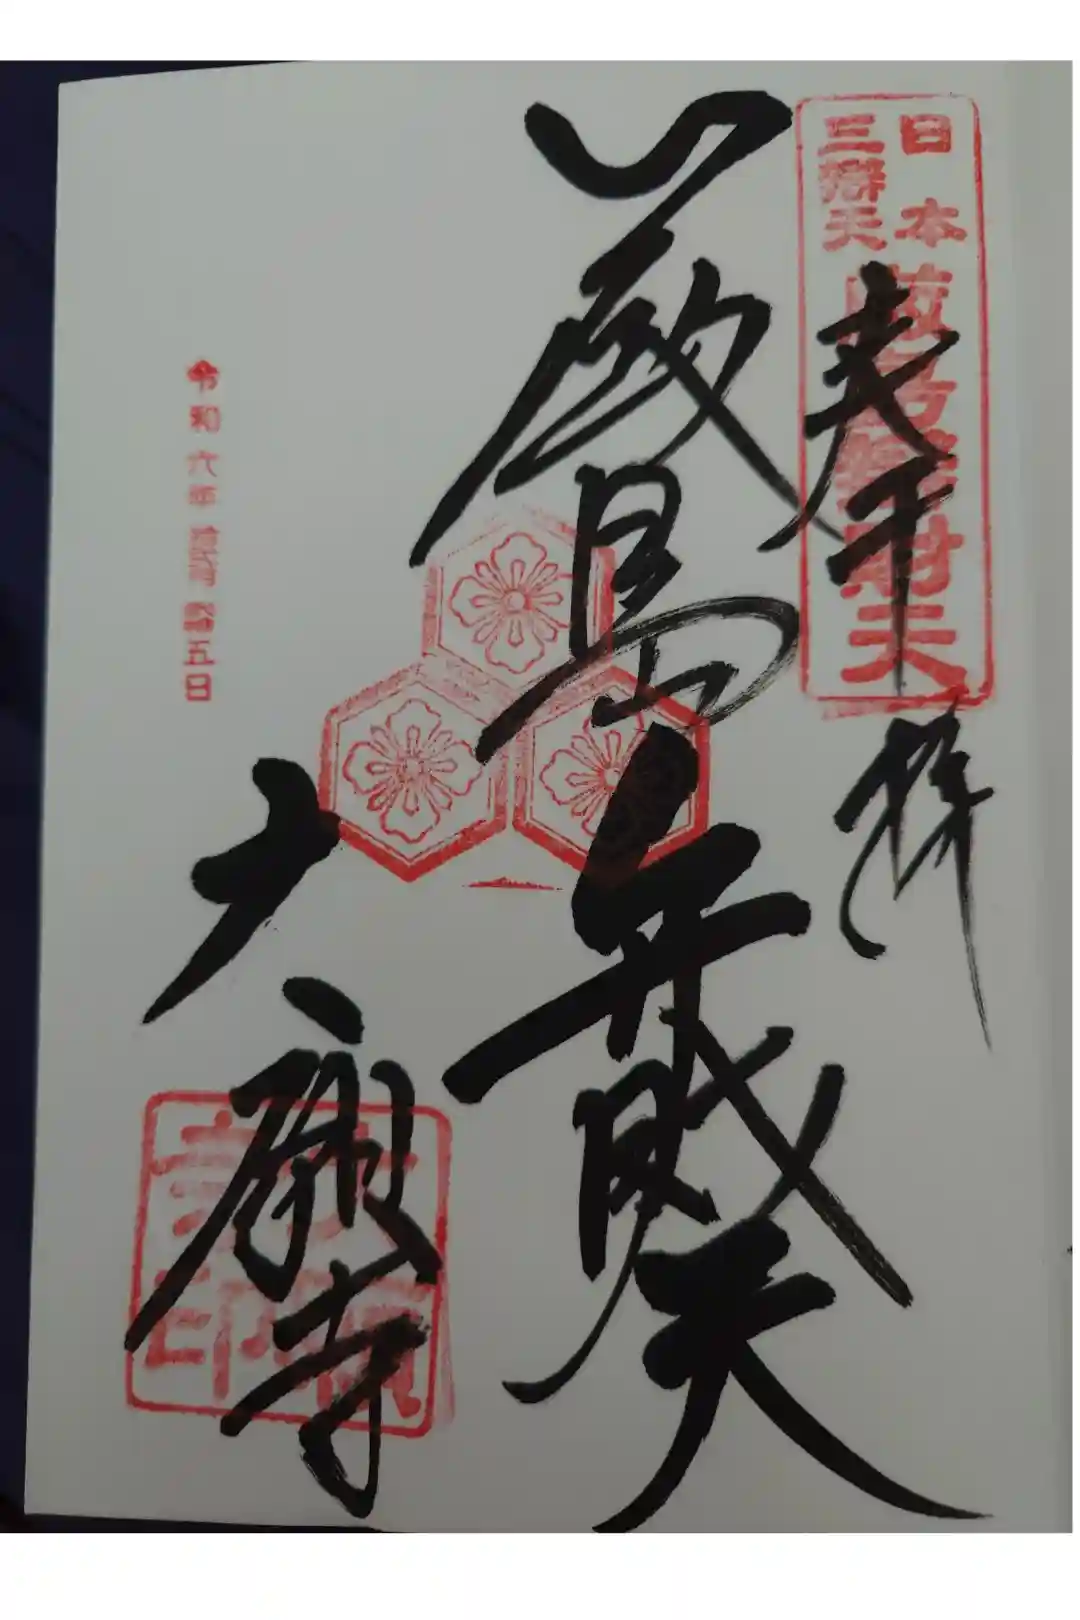 日本
三辯天
厳島辯財天
奉拝
厳島弁財天
令和六年拾弐月 五日
大願寺